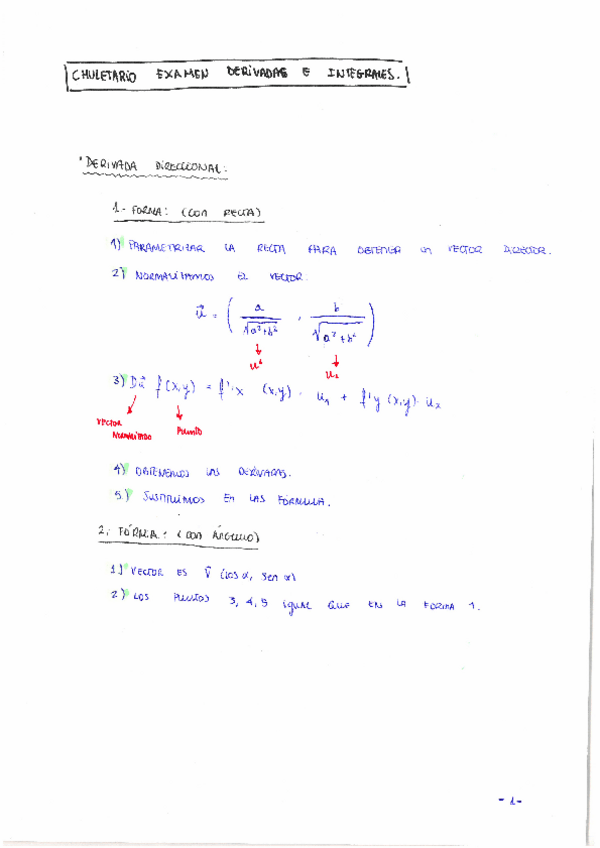 CHULETARIO EXAMEN DERIVADAS E INTEGRALES.
• DERIVADA DIRECCIONAL:
1- FORMA: (CON RECTA)
1) PARAMETRIZAR LA RECTA PARA OBTENER UN VECTOR DIRECTOR.
2) NORMALIZAMOS EL VECTOR:
u⃗ = ( a / √(a²+b²) , b / √(a²+b²) )
↓ ↓
u₁ u₂
3) Du⃗ f(x,y) = f'x (x,y) · u₁ + f'y (x,y) · u₂
VECTOR NORMALIZADO PUNTO
4) OBTENEMOS LAS DERIVADAS.
5) SUSTITUIMOS EN LAS FÓRMULA.
2. FORMA: (CON ÁNGULO)
1) VECTOR ES V⃗ (cos α, sen α)
2) LOS PUNTOS 3, 4, 5 IGUAL QUE EN LA FORMA 1.
- 1 -